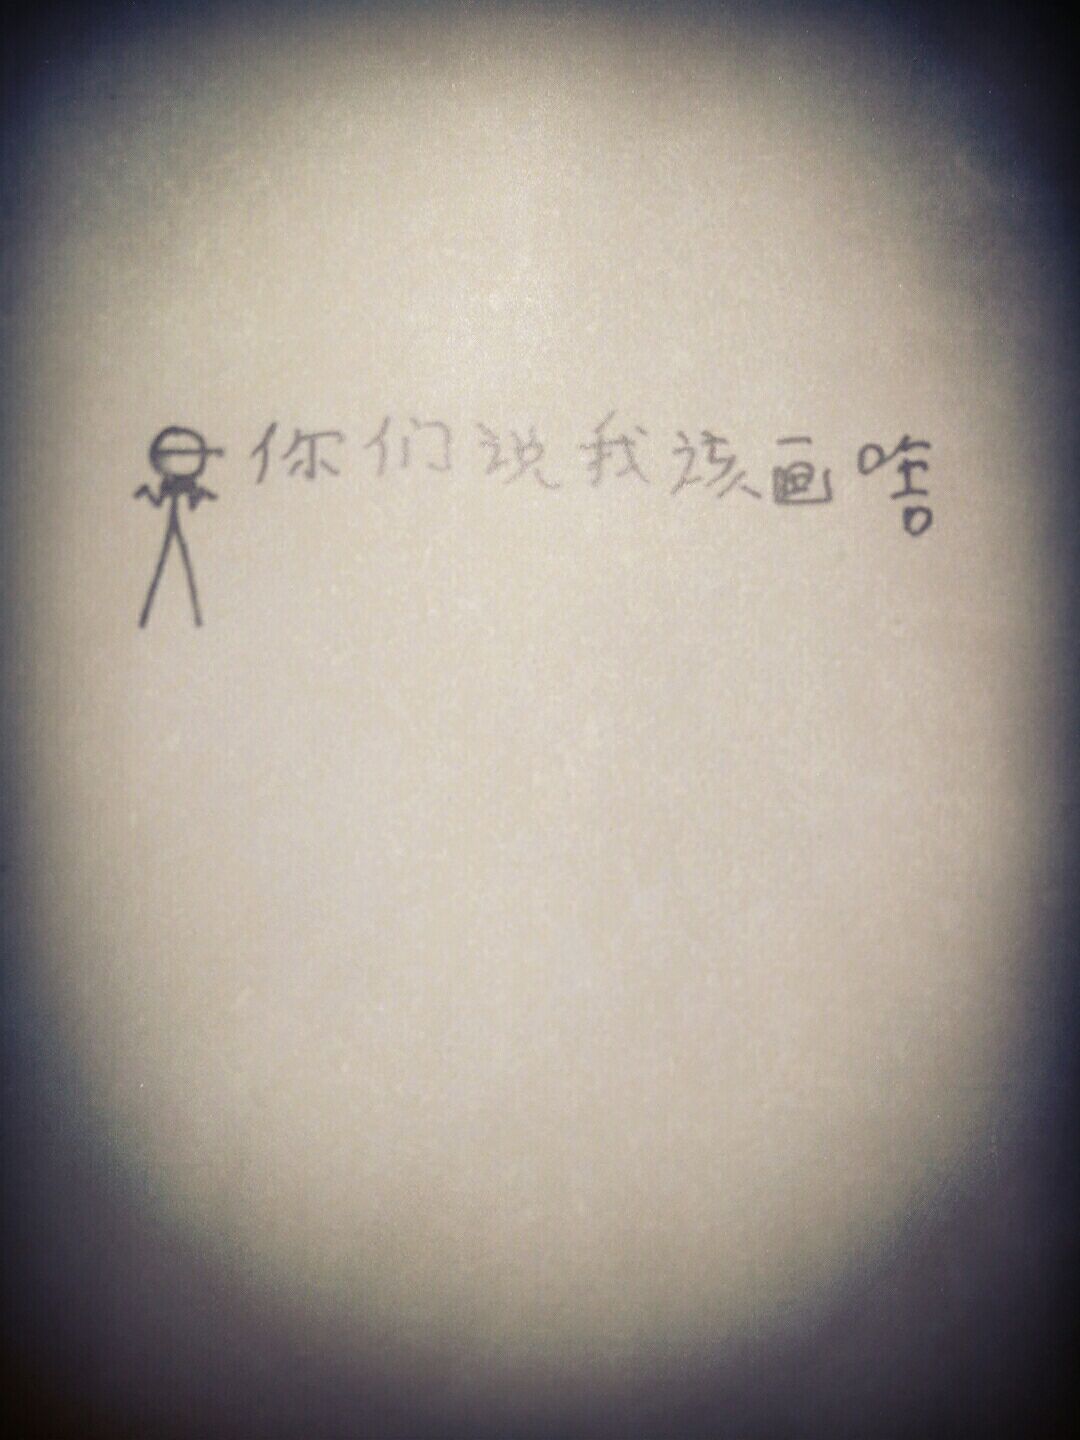 你们说我该画啥